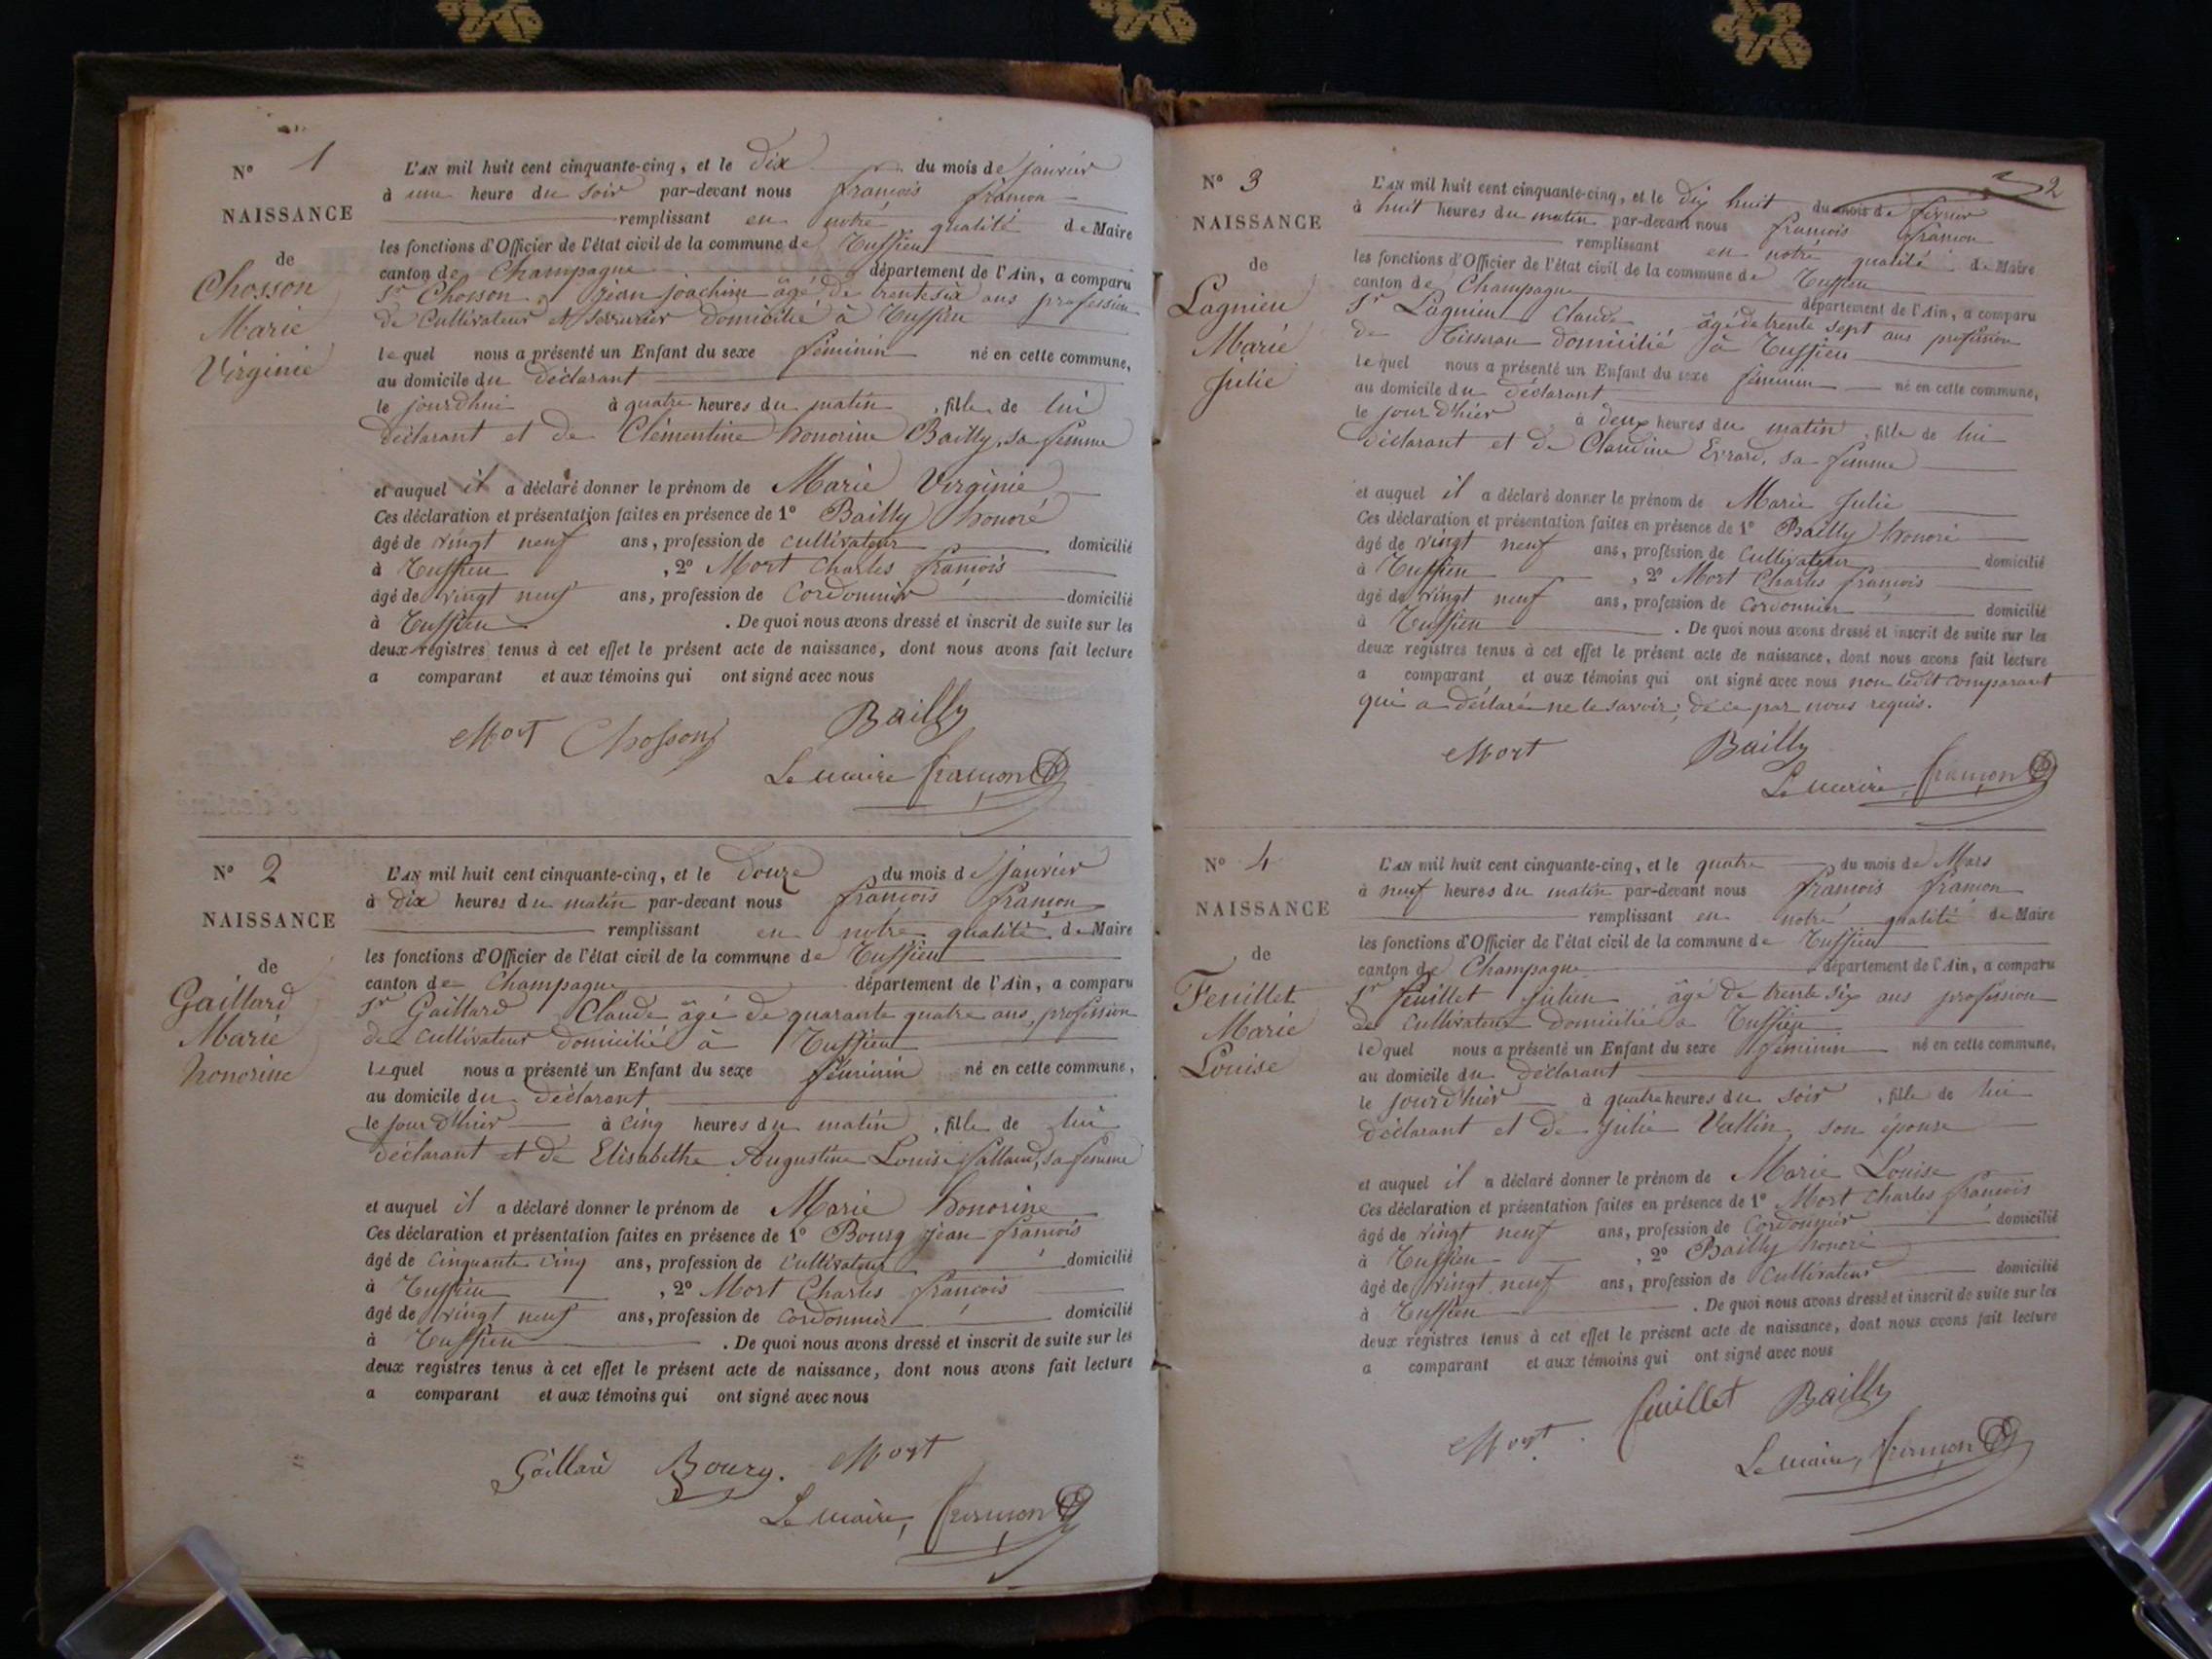 N° 1
NAISSANCE
de
Chosson
Marie
Virginie
L'AN mil huit cent cinquante-cinq, et le dix du mois de janvier
à une heure du soir par-devant nous françois françon
remplissant en notre qualité de Maire
les fonctions d'Officier de l'état civil de la commune de
canton de Champagne département de l'Ain, a comparu
Sr Chosson, jean joachim âgé de trente six ans profession
de cultivateur et serrurier domicilié à
lequel nous a présenté un Enfant du sexe féminin né en cette commune,
au domicile du déclarant
le jourdhui à quatre heures du matin, fille de lui
déclarant et de Clémentine honorine Bailly, sa femme
et auquel il a déclaré donner le prénom de Marie Virginie
Ces déclaration et présentation faites en présence de 1° Bailly honoré
âgé de vingt neuf ans, profession de cultivateur domicilié
à , 2° Mort Charles françois
âgé de vingt neuf ans, profession de Cordonnier domicilié
à . De quoi nous avons dressé et inscrit de suite sur les
deux registres tenus à cet effet le présent acte de naissance, dont nous avons fait lecture
a comparant et aux témoins qui ont signé avec nous
Mort Chosson Bailly
Le maire françon
N° 2
NAISSANCE
de
Gaillard
Marie
honorine
L'AN mil huit cent cinquante-cinq, et le douze du mois de janvier
à dix heures du matin par-devant nous françois françon
remplissant en notre qualité de Maire
les fonctions d'Officier de l'état civil de la commune de
canton de Champagne département de l'Ain, a comparu
Sr Gaillard Claude âgé de quarante quatre ans, profession
de cultivateur domicilié à
lequel nous a présenté un Enfant du sexe féminin né en cette commune,
au domicile du déclarant
le jour d'hier à cinq heures du matin, fille de lui
déclarant et de Elisabethe Augustine Louise , sa femme
et auquel il a déclaré donner le prénom de Marie honorine
Ces déclaration et présentation faites en présence de 1° Bourg jean françois
âgé de cinquante cinq ans, profession de cultivateur domicilié
à , 2° Mort Charles françois
âgé de vingt neuf ans, profession de cordonnier domicilié
à . De quoi nous avons dressé et inscrit de suite sur les
deux registres tenus à cet effet le présent acte de naissance, dont nous avons fait lecture
a comparant et aux témoins qui ont signé avec nous
Gaillard Bourg. Mort
Le maire, françon
2
N° 3
NAISSANCE
de
Lagnieu
Marie
Julie
L'AN mil huit cent cinquante-cinq, et le dix huit du mois de février
à huit heures du matin par-devant nous françois françon
remplissant en notre qualité de Maire
les fonctions d'Officier de l'état civil de la commune de
canton de Champagne département de l'Ain, a comparu
Sr Lagnieu Claude âgé de trente sept ans profession
de Tisseran domicilié à
lequel nous a présenté un Enfant du sexe féminin né en cette commune,
au domicile du déclarant
le jour d'hier à deux heures du matin, fille de lui
déclarant et de Claudine Evrard, sa femme
et auquel il a déclaré donner le prénom de Marie Julie
Ces déclaration et présentation faites en présence de 1° Bailly honoré
âgé de vingt neuf ans, profession de cultivateur domicilié
à , 2° Mort Charles françois
âgé de vingt neuf ans, profession de cordonnier domicilié
à . De quoi nous avons dressé et inscrit de suite sur les
deux registres tenus à cet effet le présent acte de naissance, dont nous avons fait lecture
a comparant et aux témoins qui ont signé avec nous non ledit comparant
qui a déclaré ne le savoir, de ce par nous requis.
Mort Bailly
Le maire, françon
N° 4
NAISSANCE
de
Feuillet
Marie
Louise
L'AN mil huit cent cinquante-cinq, et le quatre du mois de Mars
à neuf heures du matin par-devant nous françois françon
remplissant en notre qualité de Maire
les fonctions d'Officier de l'état civil de la commune de
canton de Champagne département de l'Ain, a comparu
Sr feuillet Julien, âgé de trente six ans profession
de cultivateur domicilié a
lequel nous a présenté un Enfant du sexe féminin né en cette commune,
au domicile du déclarant
le jour d'hier à quatre heures du soir, fille de lui
déclarant et de Julie Vallin son épouse
et auquel il a déclaré donner le prénom de Marie Louise
Ces déclaration et présentation faites en présence de 1° Mort Charles françois
âgé de vingt neuf ans, profession de Cordonnier domicilié
à , 2° Bailly honoré
âgé de vingt neuf ans, profession de cultivateur domicilié
à . De quoi nous avons dressé et inscrit de suite sur les
deux registres tenus à cet effet le présent acte de naissance, dont nous avons fait lecture
a comparant et aux témoins qui ont signé avec nous
Mort. feuillet Bailly
Le maire, françon